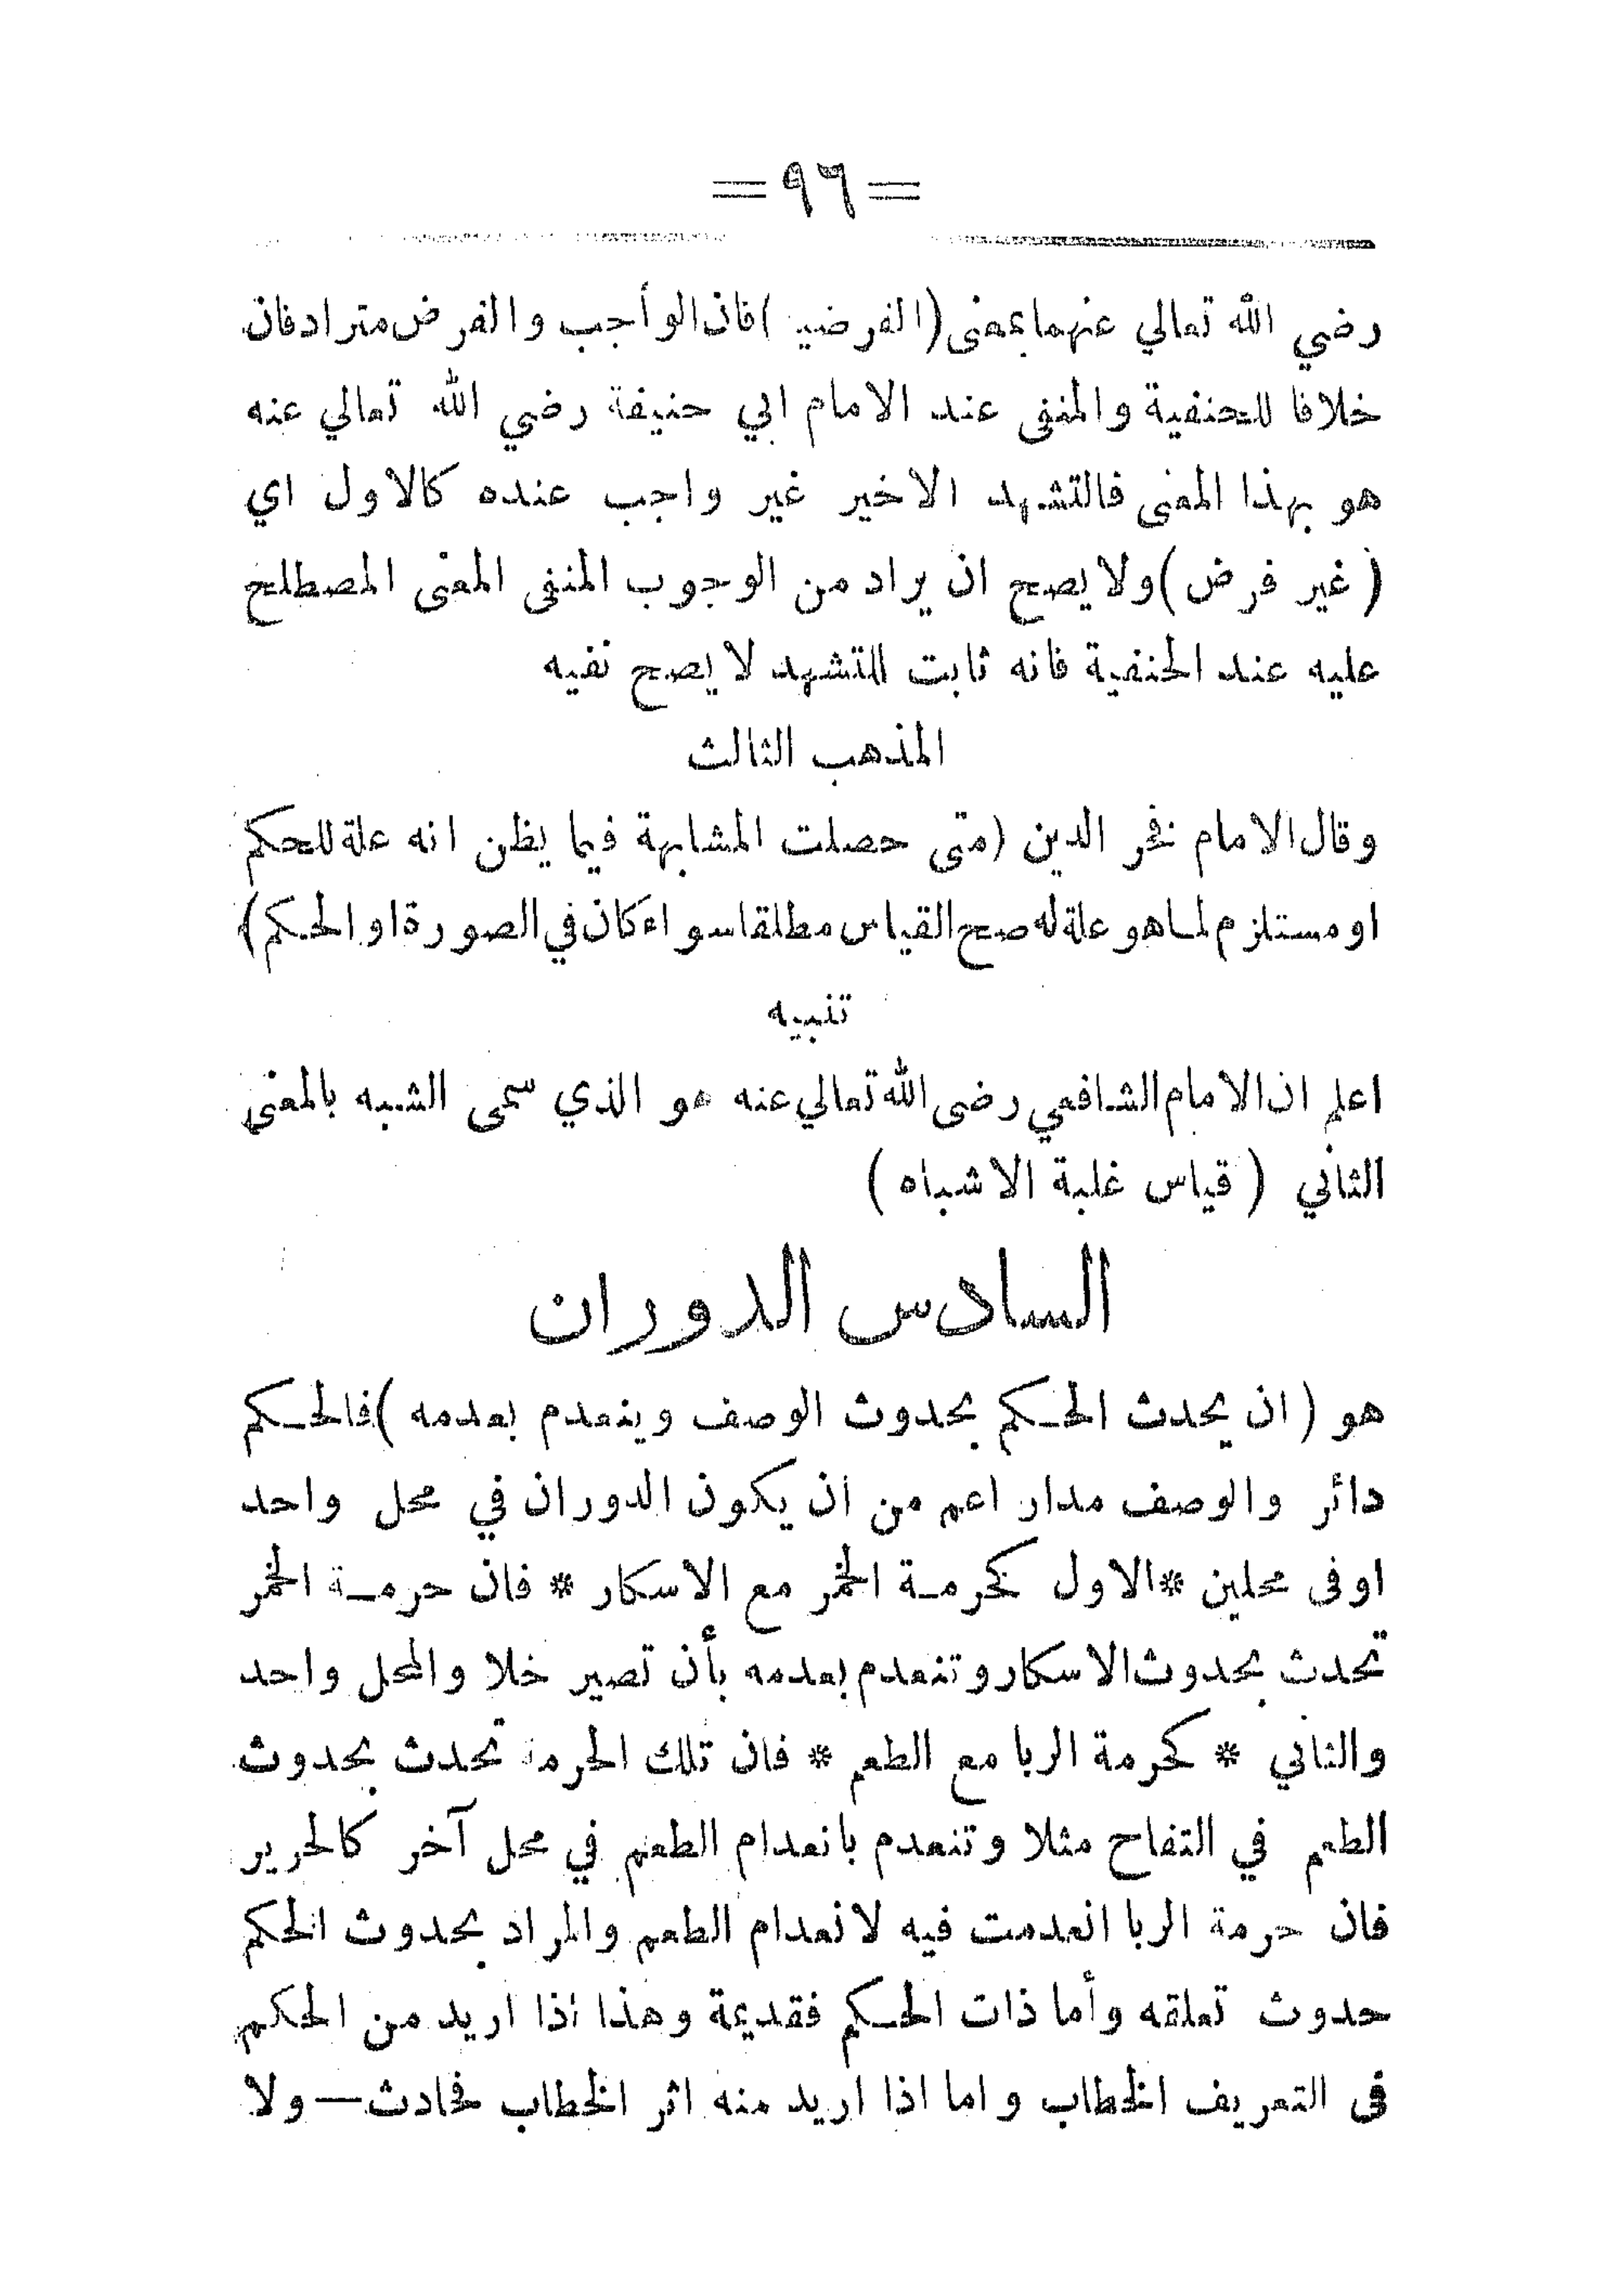 =٩٦=
رضي الله تعالي عنهما بمعنى (الفرضية) فان الوأجب والفرض مترادفان
خلافا للحنفية والمنفى عند الامام ابي حنيفة رضي الله تعالي عنه
هو بهذا المعنى فالتشهد الاخير غير واجب عنده كالاول اي
(غير فرض) ولا يصح ان يراد من الوجوب المنفى المعنى المصطلح
عليه عند الحنفية فانه ثابت للتشهد لا يصح نفيه
المذهب الثالث
وقال الامام فخر الدين (متى حصلت المشابهة فيما يظن انه علة للحكم
او مستلزم لما هو علة له صح القياس مطلقا سواء كان في الصورة او الحكم)
تنبيه
اعلم ان الامام الشافعي رضى الله تعالي عنه هو الذي سمى الشبه بالمعنى
الثاني (قياس غلبة الاشباه)
السادس الدوران
هو (ان يحدث الحكم بحدوث الوصف وينعدم بعدمه) فالحكم
دائر والوصف مدار اعم من ان يكون الدوران في محل واحد
اوفى محلين * الاول كحرمة الخمر مع الاسكار * فان حرمة الخمر
تحدث بحدوث الاسكار وتنعدم بعدمه بأن تصير خلا والمحل واحد
والثاني * كحرمة الربا مع الطعم * فان تلك الحرمة تحدث بحدوث
الطعم في التفاح مثلا وتنعدم بانعدام الطعم في محل آخر كالحرير
فان حرمة الربا انعدمت فيه لانعدام الطعم والمراد بحدوث الحكم
حدوث تعلقه وأما ذات الحكم فقديمة وهذا اذا اريد من الحكم
فى التعريف الخطاب واما اذا اريد منه اثر الخطاب فحادث — ولا